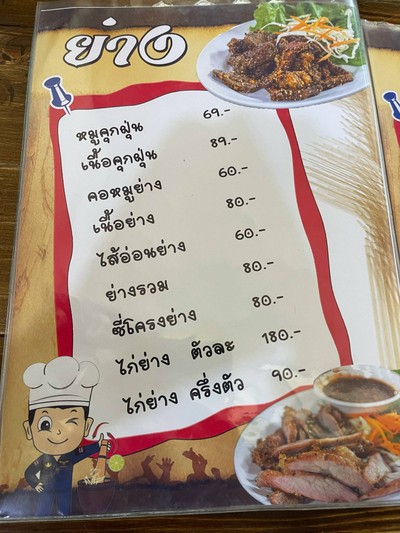 ย่าง
หมูคุกฝุ่น 69.-
เนื้อคุกฝุ่น 89.-
คอหมูย่าง 60.-
เนื้อย่าง 80.-
ไส้อ่อนย่าง 60.-
ย่างรวม 80.-
ซี่โครงย่าง 80.-
ไก่ย่าง ตัวละ 180.-
ไก่ย่าง ครึ่งตัว 90.-